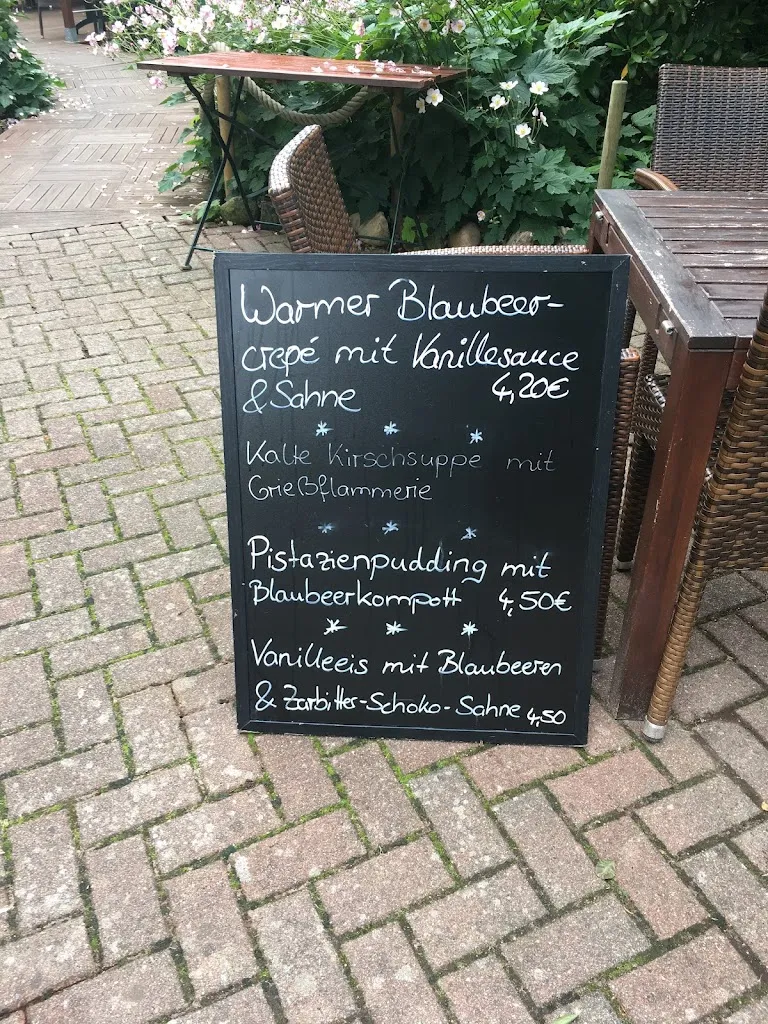 Warmer Blaubeer-
crepé mit Vanillesauce
& Sahne 4,20€
* * *
Kalte Kirschsuppe mit
Grießflammerie
* * *
Pistazienpudding mit
Blaubeerkompott 4,50€
* * *
Vanilleeis mit Blaubeeren
& Zarbitter-Schoko-Sahne 4,50